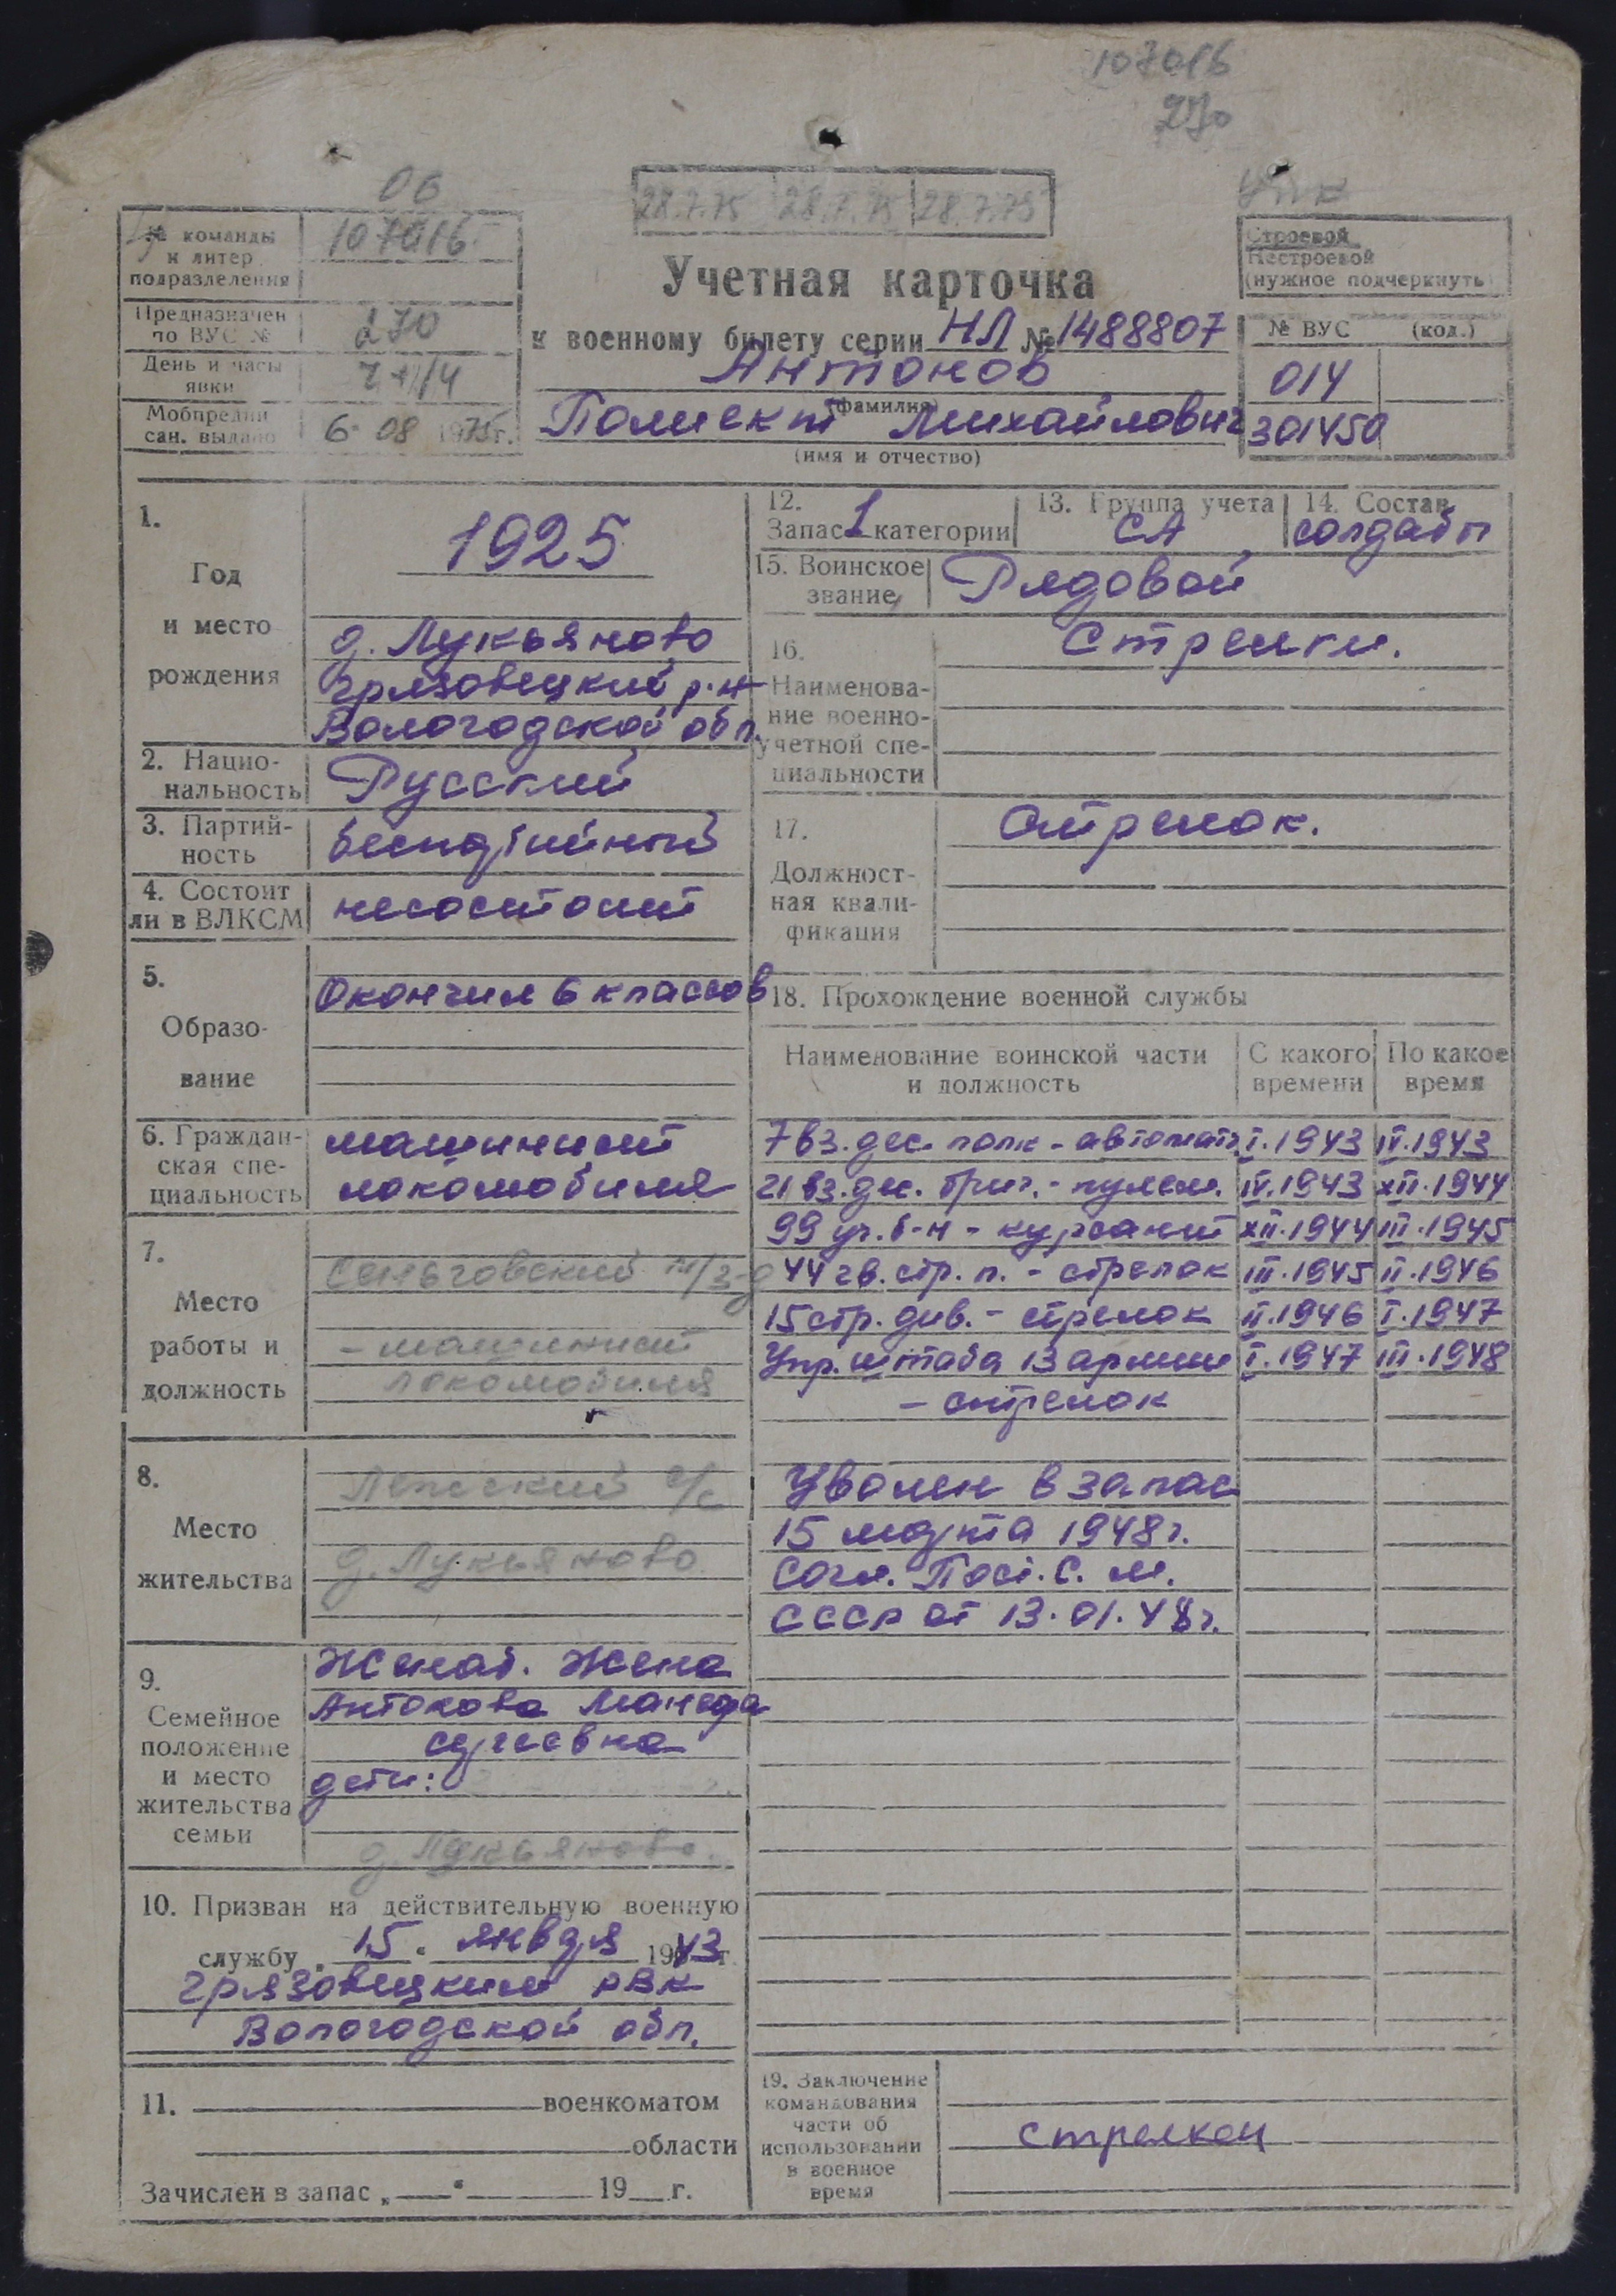 107016
270
06
28.7.75 28.7.75 28.7.75
№ команды
и литер
подразделения
107016
Предназначен
по ВУС №
270
День и часы
явки
Мобпредпи
сан. выдано
6 08 1975г.
Учетная карточка
к военному билету серии НЛ № 1488807
Антонов
(фамилия)
Полиект Михайлович
(имя и отчество)
Строевой
Нестроевой
(нужное подчеркнуть)
№ ВУС (код.)
014
301450
1.
Год
и место
рождения
1925
д. Лукьяново
Грязовецкий р-н
Вологодской обл.
2. Нацио-
нальность
Русский
3. Партий-
ность
беспартийный
4. Состоит
ли в ВЛКСМ
несостоит
5.
Образо-
вание
Окончил 6 классов
6. Граждан-
ская спе-
циальность
машинист
локомобиля
7.
Место
работы и
должность
- машинист
локомобиля
8.
Место
жительства
Лежский с/с
д. Лукьяново
9.
Семейное
положение
и место
жительства
семьи
Женат. Жена
Антонова
дети:
д. Лукьяново.
10. Призван на действительную военную
службу „ 15 " января 1943 г.
Грязовецким РВК
Вологодской обл.
11. военкоматом
области
Зачислен в запас „ " 19 г.
12.
Запас 1 категории
13. Группа учета
СА
14. Состав
солдаты
15. Воинское
звание
Рядовой
16.
Наименова-
ние военно-
учетной спе-
циальности
Стрелки.
17.
Должност-
ная квали-
фикация
Стрелок.
18. Прохождение военной службы
Наименование воинской части
и должность
С какого
времени
По какое
время
7 вз. дес. полк - автомат. I.1943 IV.1943
21 вз. дес. бриг. - пулем. IV.1943 XII.1944
99 уч. б-н - курсант XII.1944 III.1945
44 гв. стр. п. - стрелок III.1945 II.1946
15 стр. див. - стрелок II.1946 I.1947
Упр. штаба 13 армии I.1947 III.1948
- стрелок
Уволен в запас
15 марта 1948г.
Согл. Пост. С. М.
СССР от 13.01.48г.
19. Заключение
командования
части об
использовании
в военное
время
стрелком